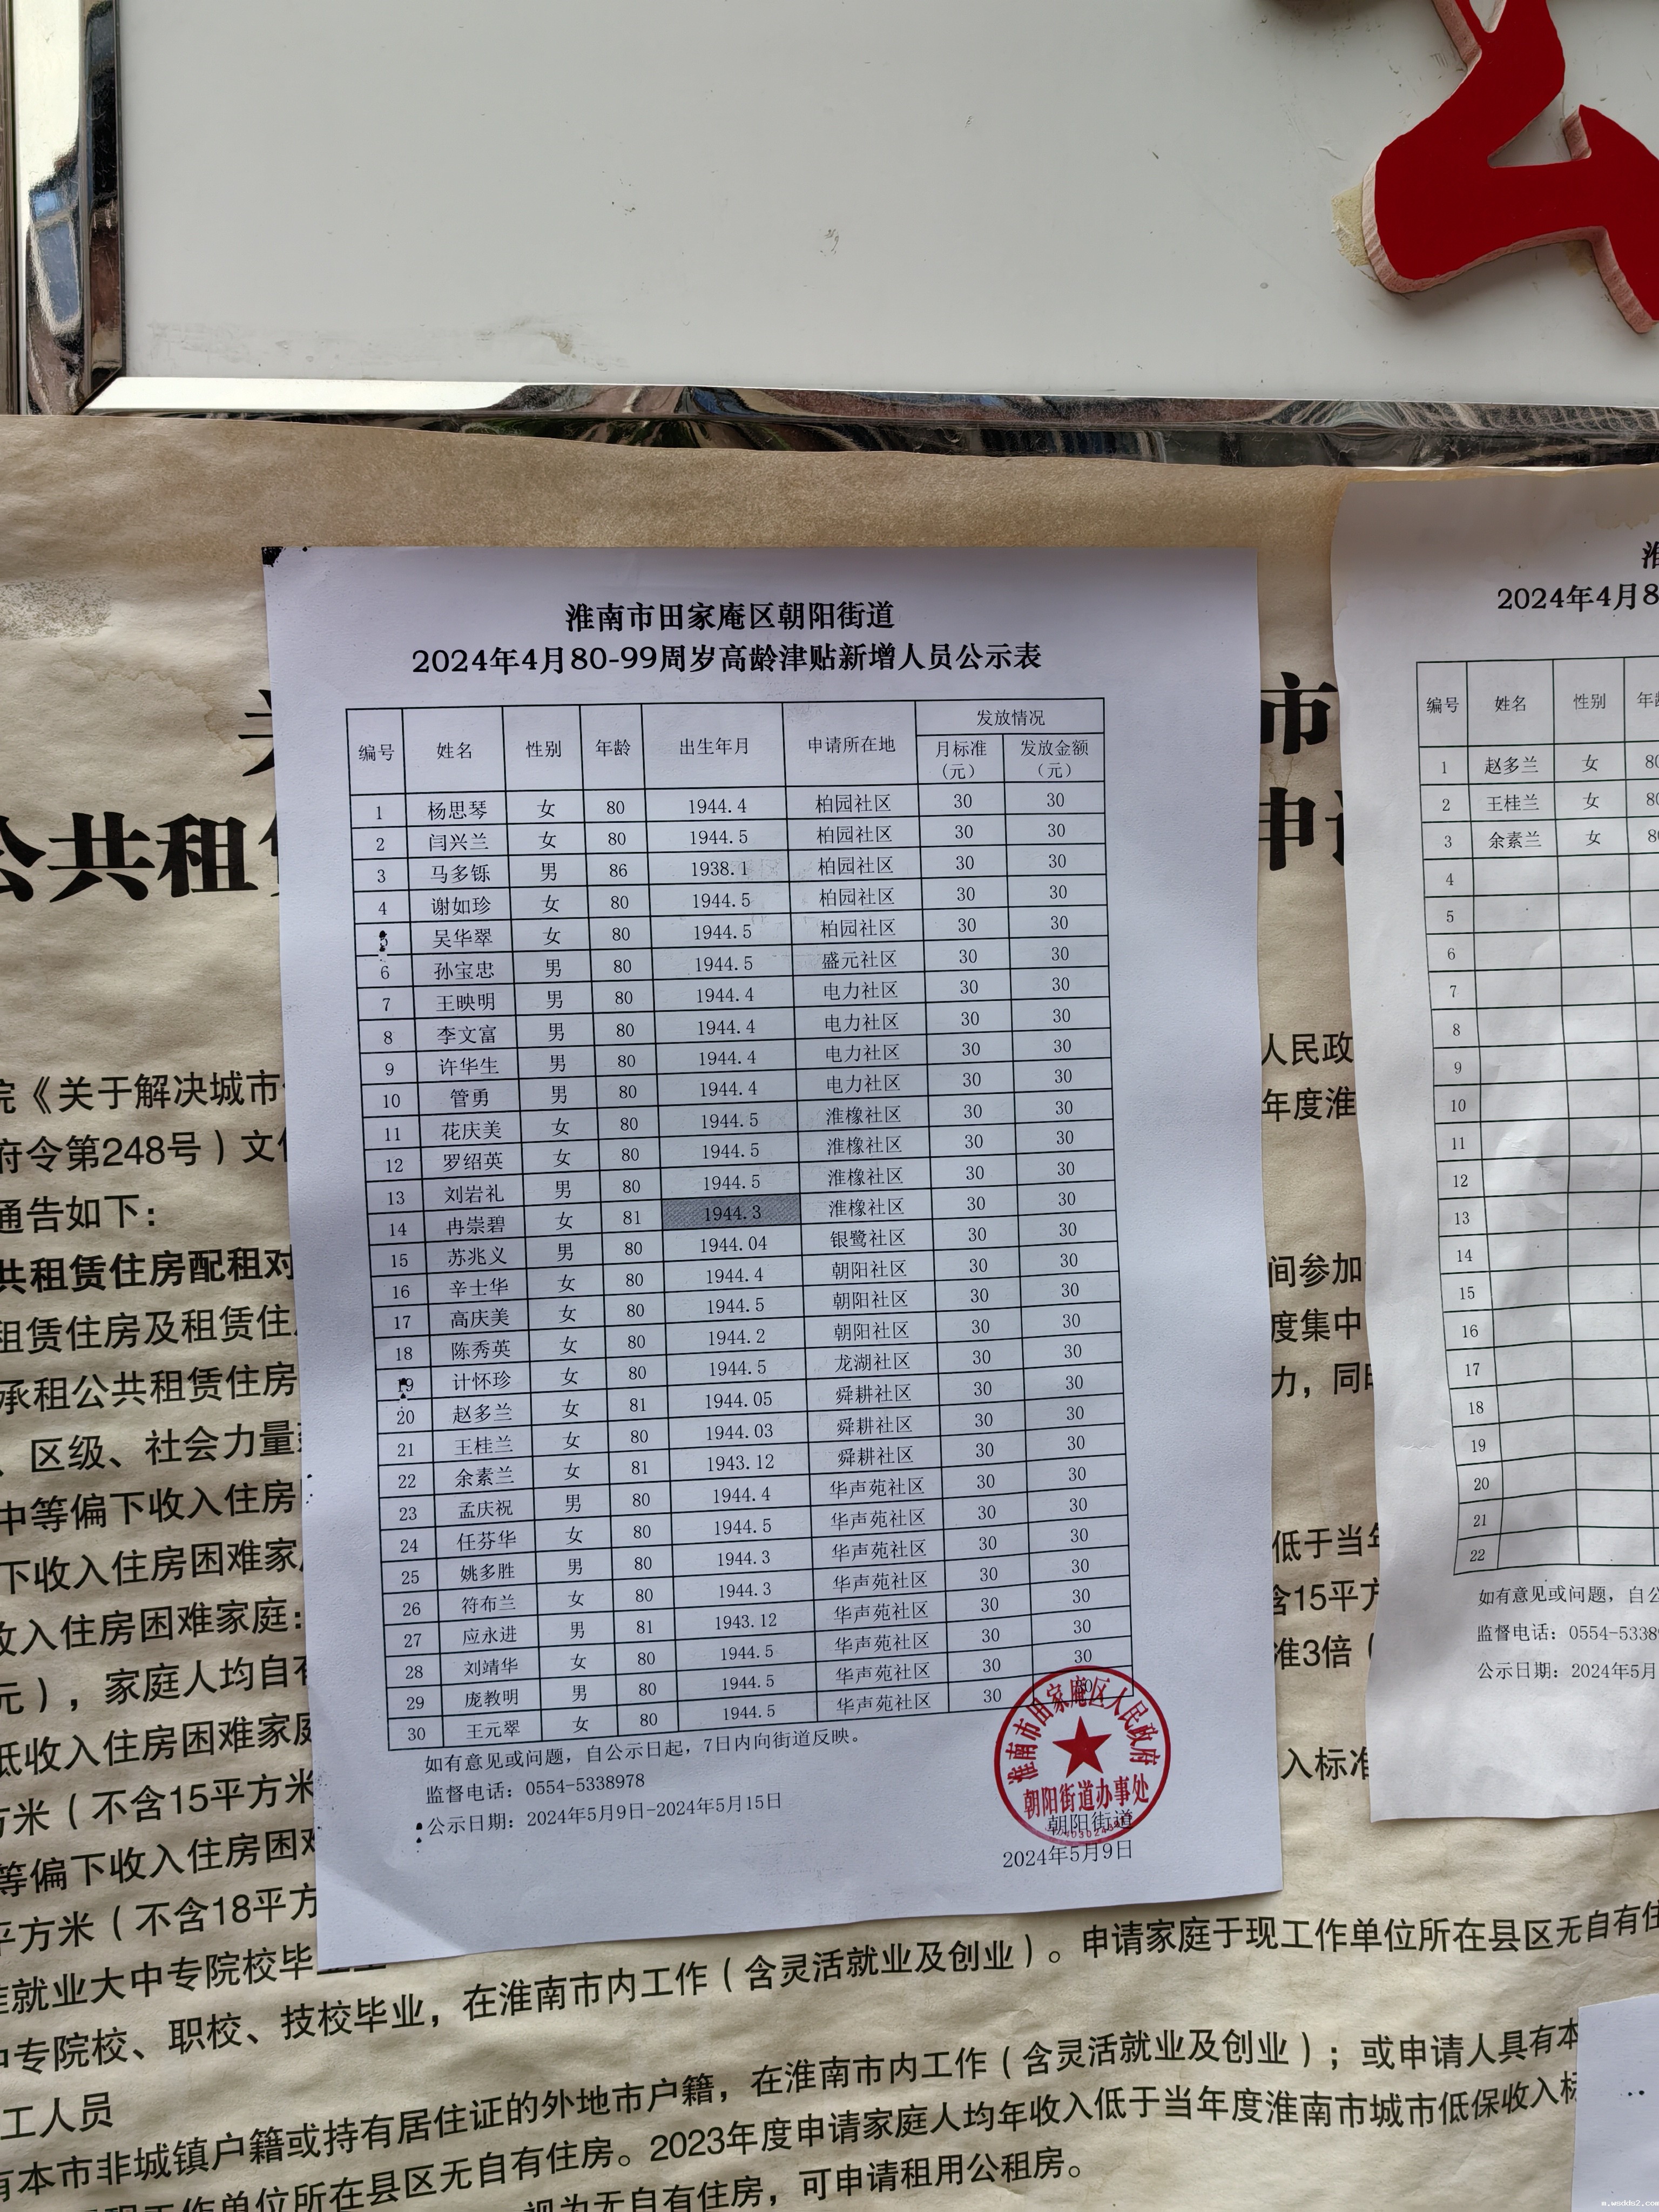 淮南市田家庵区朝阳街道
2024年4月80-99周岁高龄津贴新增人员公示表
编号 姓名 性别 年龄 出生年月 申请所在地 发放情况
月标准（元） 发放金额（元）
1 杨思琴 女 80 1944.4 柏园社区 30 30
2 闫兴兰 女 80 1944.5 柏园社区 30 30
3 马多铄 男 86 1938.1 柏园社区 30 30
4 谢如珍 女 80 1944.5 柏园社区 30 30
5 吴华翠 女 80 1944.5 柏园社区 30 30
6 孙宝忠 男 80 1944.5 盛元社区 30 30
7 王映明 男 80 1944.4 电力社区 30 30
8 李文富 男 80 1944.4 电力社区 30 30
9 许华生 男 80 1944.4 电力社区 30 30
10 管勇 男 80 1944.4 电力社区 30 30
11 花庆美 女 80 1944.5 淮橡社区 30 30
12 罗绍英 女 80 1944.5 淮橡社区 30 30
13 刘岩礼 男 80 1944.5 淮橡社区 30 30
14 冉崇碧 女 81 1944.3 淮橡社区 30 30
15 苏兆义 男 80 1944.04 银鹭社区 30 30
16 辛士华 女 80 1944.4 朝阳社区 30 30
17 高庆美 女 80 1944.5 朝阳社区 30 30
18 陈秀英 女 80 1944.2 朝阳社区 30 30
19 计怀珍 女 80 1944.5 龙湖社区 30 30
20 赵多兰 女 81 1944.05 舜耕社区 30 30
21 王桂兰 女 80 1944.03 舜耕社区 30 30
22 余素兰 女 81 1943.12 舜耕社区 30 30
23 孟庆祝 男 80 1944.4 华声苑社区 30 30
24 任芬华 女 80 1944.5 华声苑社区 30 30
25 姚多胜 男 80 1944.3 华声苑社区 30 30
26 符布兰 女 80 1944.3 华声苑社区 30 30
27 应永进 男 81 1943.12 华声苑社区 30 30
28 刘靖华 女 80 1944.5 华声苑社区 30 30
29 庞教明 男 80 1944.5 华声苑社区 30 30
30 王元翠 女 80 1944.5 华声苑社区 30 30
如有意见或问题，自公示日起，7日内向街道反映。
监督电话：0554-5338978
公示日期：2024年5月9日-2024年5月15日
淮南市田家庵区人民政府
朝阳街道办事处
朝阳街道
2024年5月9日
2024年4月8
编号 姓名 性别
1 赵多兰 女 80
2 王桂兰 女 80
3 余素兰 女 80
4
5
6
7
8
9
10
11
12
13
14
15
16
17
18
19
20
21
22
如有意见或问题，自公
监督电话：0554-5338
公示日期：2024年5月
市
公共租 申
院《关于解决城市 人民政
府令第248号）文 年度淮
通告如下：
共租赁住房配租对 间参加
租赁住房及租赁住 度集中
承租公共租赁住房 力，同
、区级、社会力量
中等偏下收入住房
下收入住房困难家 低于当年
收入住房困难家庭： 含15平方
元），家庭人均自有 准3倍（
低收入住房困难家庭
方米（不含15平方米 入标准
等偏下收入住房困难
平方米（不含18平方
就业大中专院校毕业生
中专院校、职校、技校毕业，在淮南市内工作（含灵活就业及创业）。申请家庭于现工作单位所在县区无自有住
工人员
有本市非城镇户籍或持有居住证的外地市户籍，在淮南市内工作（含灵活就业及创业）；或申请人具有本
工作单位所在县区无自有住房。2023年度申请家庭人均年收入低于当年度淮南市城市低保收入标
视为无自有住房，可申请租用公租房。
m.wsddu2.com